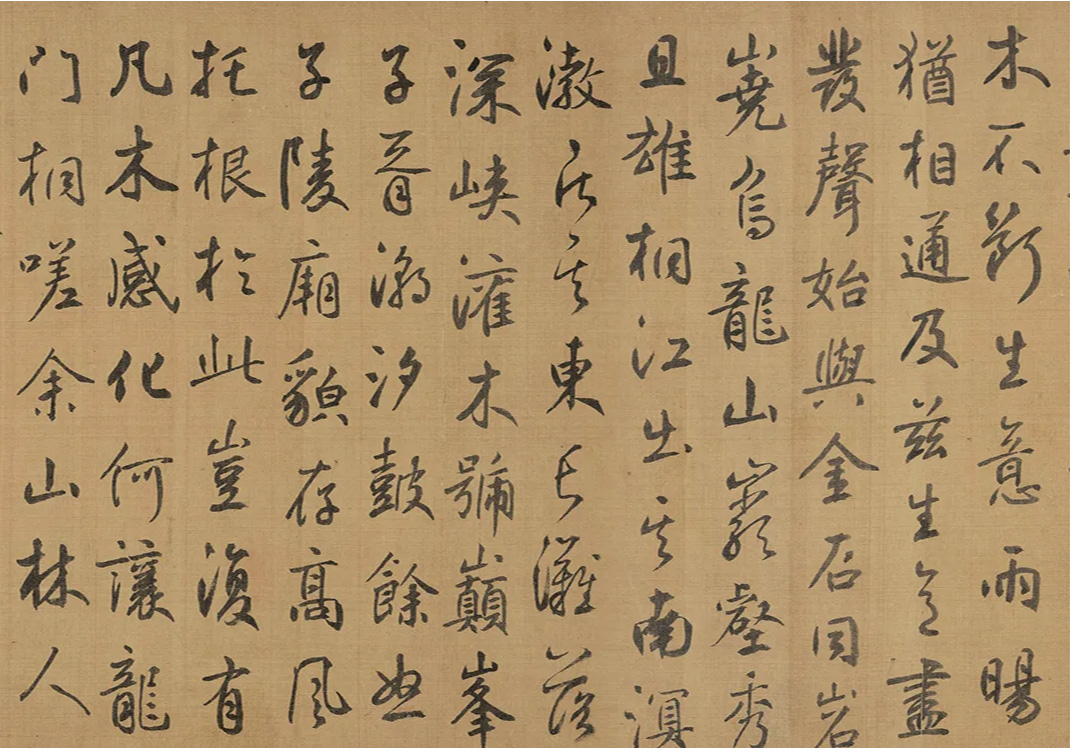 木不斲生意雨暘
猶相通及兹生意盡
發聲始與金石同岩
嶤烏龍山巖壑秀
且雄桐江出其南溟
漵居其東長灘落
深峽灌木號巔峯
子胥潮汐鼓餘怒
子陵廟貌存高風
托根於此豈復有
凡木感化何讓龍
門桐嗟余山林人